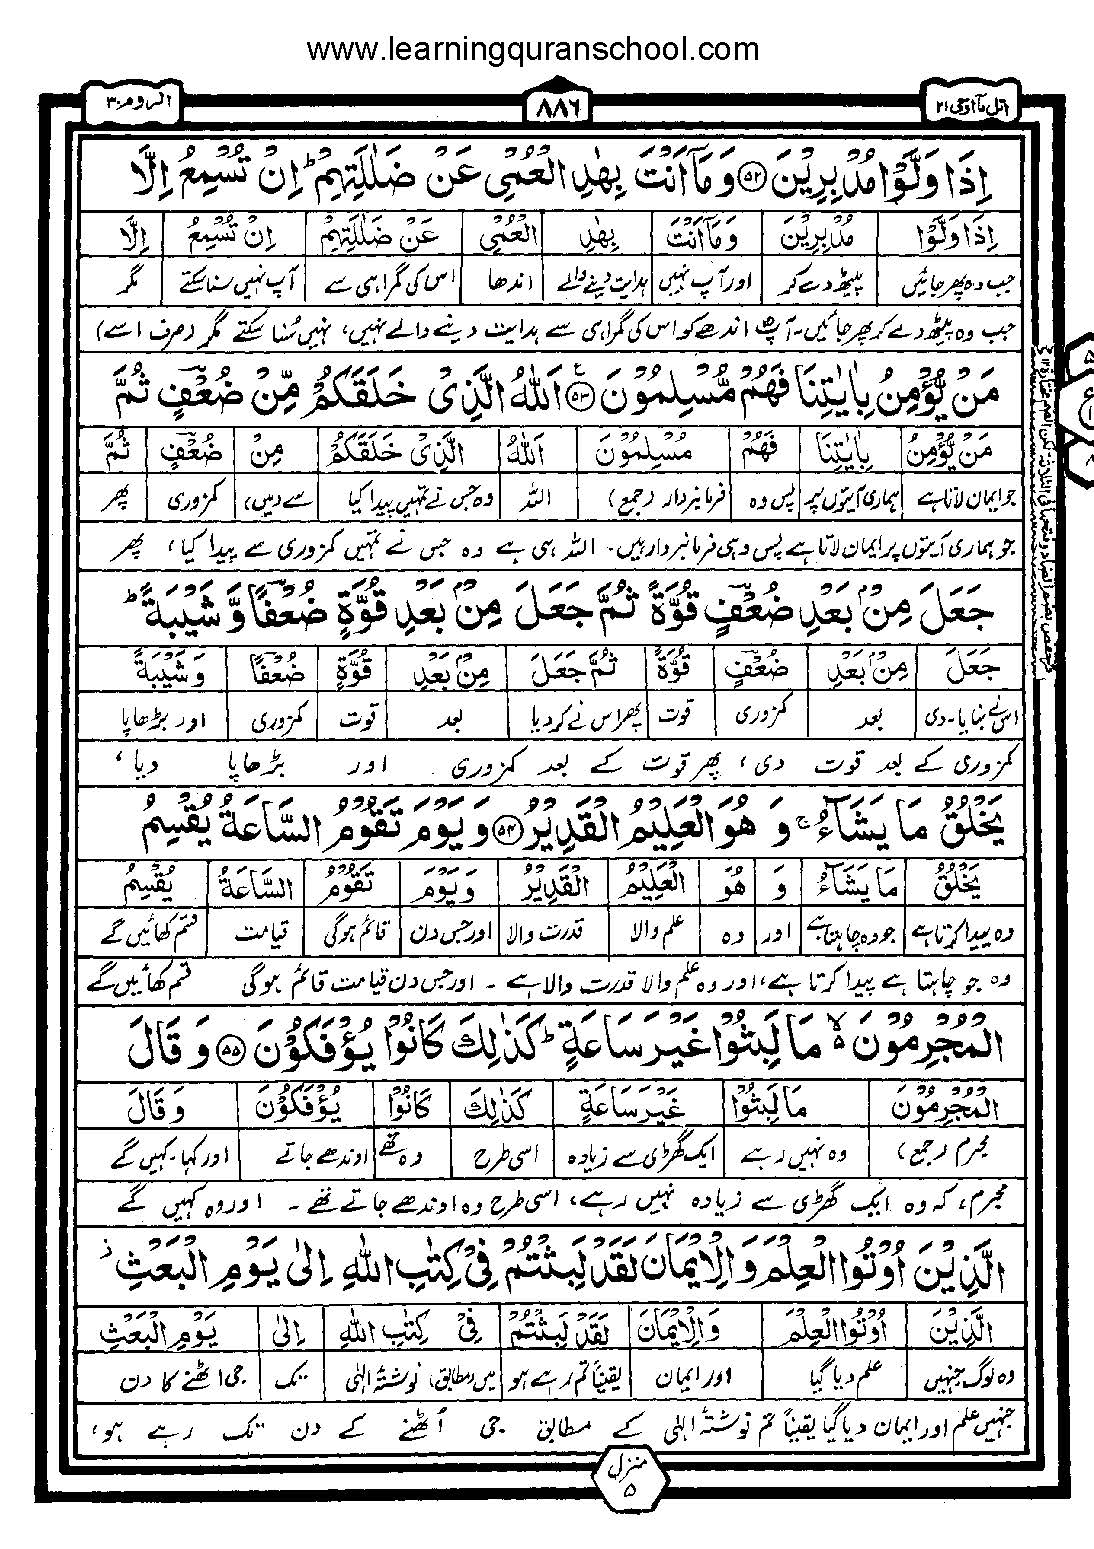 www.learningquranschool.com
اتل مآ اوحی ۲۱
۸۸۶
الروم ۳۰
اِذَا وَلَّوْا مُدْبِرِيْنَ ۝۵۲ وَ مَاۤ اَنْتَ بِهٰدِ الْعُمْیِ عَنْ ضَلٰلَتِهِمْ ؕ اِنْ تُسْمِعُ اِلَّا
اِذَا وَلَّوْا مُدْبِرِيْنَ وَمَاۤ اَنْتَ بِهٰدِ الْعُمْیِ عَنْ ضَلٰلَتِهِمْ اِنْ تُسْمِعُ اِلَّا
جب وہ پھر جائیں پیٹھ دے کر اور آپ نہیں ہدایت دینے والے اندھا اس کی گمراہی سے آپ نہیں سنا سکتے مگر
جب وہ پیٹھ دے کر پھر جائیں۔ آپ اندھے کو اس کی گمراہی سے ہدایت دینے والے نہیں، نہیں سُنا سکتے مگر (صرف اسے)
مَنْ يُّؤْمِنُ بِاٰيٰتِنَا فَهُمْ مُّسْلِمُوْنَ ۝۵۳ اَللّٰهُ الَّذِیْ خَلَقَكُمْ مِّنْ ضُعْفٍ ثُمَّ
مَنْ يُّؤْمِنُ بِاٰيٰتِنَا فَهُمْ مُسْلِمُوْنَ اَللّٰهُ الَّذِیْ خَلَقَكُمْ مِنْ ضُعْفٍ ثُمَّ
جو ایمان لاتا ہے ہماری آیتوں پر پس وہ فرمانبردار (جمع) اللہ وہ جس نے تمہیں پیدا کیا سے (میں) کمزوری پھر
جو ہماری آیتوں پر ایمان لاتا ہے پس وہی فرمانبردار ہیں۔ اللہ ہی ہے وہ جس نے تمہیں کمزوری سے پیدا کیا، پھر
جَعَلَ مِنْۢ بَعْدِ ضُعْفٍ قُوَّةً ثُمَّ جَعَلَ مِنْۢ بَعْدِ قُوَّةٍ ضُعْفًا وَّ شَيْبَةً ؕ
جَعَلَ مِنْۢ بَعْدِ ضُعْفٍ قُوَّةً ثُمَّ جَعَلَ مِنْۢ بَعْدِ قُوَّةٍ ضُعْفًا وَ شَيْبَةً
اس نے بنایا۔ دی بعد کمزوری قوت پھر اس نے کر دیا بعد قوت کمزوری اور بڑھاپا
کمزوری کے بعد قوت دی، پھر قوت کے بعد کمزوری اور بڑھاپا دیا،
يَخْلُقُ مَا يَشَآءُ ۚ وَ هُوَ الْعَلِيْمُ الْقَدِيْرُ ۝۵۴ وَ يَوْمَ تَقُوْمُ السَّاعَةُ يُقْسِمُ
يَخْلُقُ مَا يَشَآءُ وَ هُوَ الْعَلِيْمُ الْقَدِيْرُ وَيَوْمَ تَقُوْمُ السَّاعَةُ يُقْسِمُ
وہ پیدا کرتا ہے جو وہ چاہتا ہے اور وہ علم والا قدرت والا اور جس دن قائم ہوگی قیامت قسم کھائیں گے
وہ جو چاہتا ہے پیدا کرتا ہے، اور وہ علم والا قدرت والا ہے ۔ اور جس دن قیامت قائم ہوگی قسم کھائیں گے
الْمُجْرِمُوْنَ ۙ۬ مَا لَبِثُوْا غَيْرَ سَاعَةٍ ؕ كَذٰلِكَ كَانُوْا يُؤْفَكُوْنَ ۝۵۵ وَ قَالَ
الْمُجْرِمُوْنَ مَا لَبِثُوْا غَيْرَ سَاعَةٍ كَذٰلِكَ كَانُوْا يُؤْفَكُوْنَ وَ قَالَ
مجرم (جمع) وہ نہیں رہے ایک گھڑی سے زیادہ اسی طرح وہ تھے اوندھے جاتے اور کہا۔ کہیں گے
مجرم، کہ وہ ایک گھڑی سے زیادہ نہیں رہے، اسی طرح وہ اوندھے جاتے تھے ۔ اور وہ کہیں گے
الَّذِيْنَ اُوْتُوا الْعِلْمَ وَ الْاِيْمَانَ لَقَدْ لَبِثْتُمْ فِیْ كِتٰبِ اللّٰهِ اِلٰی يَوْمِ الْبَعْثِ ؗ
الَّذِيْنَ اُوْتُوا الْعِلْمَ وَالْاِيْمَانَ لَقَدْ لَبِثْتُمْ فِیْ كِتٰبِ اللّٰهِ اِلٰی يَوْمِ الْبَعْثِ
وہ لوگ جنہیں علم دیا گیا اور ایمان یقیناً تم رہے ہو میں (مطابق) نوشتۂ الٰہی تک جی اٹھنے کا دن
جنہیں علم اور ایمان دیا گیا یقیناً تم نوشتۂ الٰہی کے مطابق جی اُٹھنے کے دن تک رہے ہو،
منزل
۵